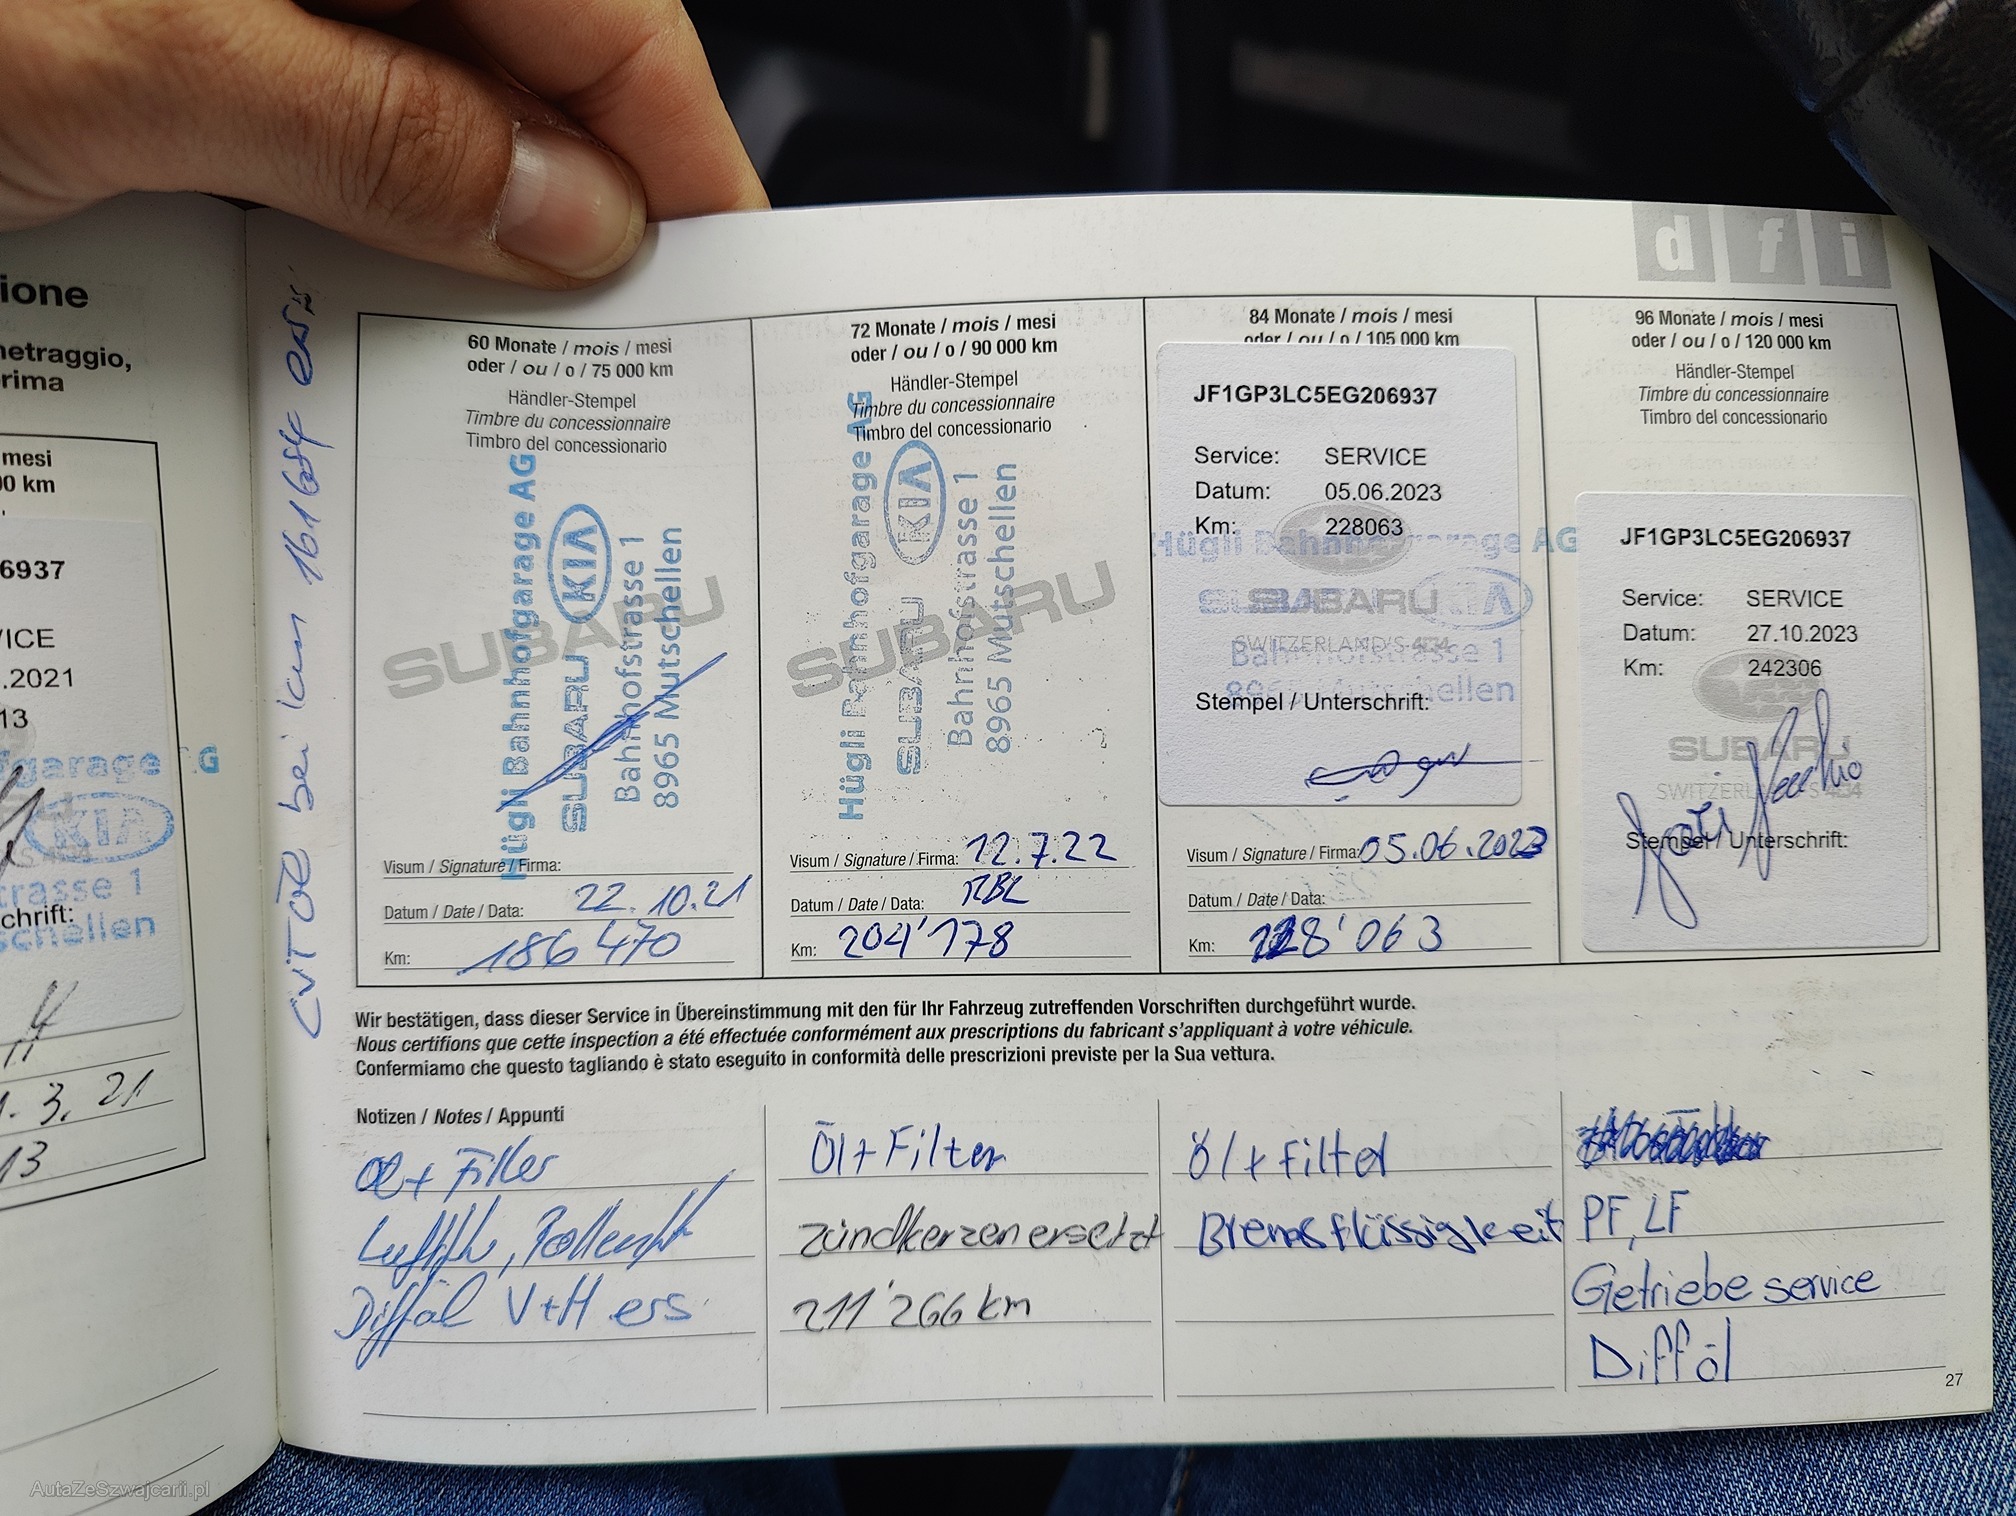 ione
netraggio,
rima
mesi
00 km
6937
VICE
.2021
13
garage AG
KIA
trasse 1
chrift:
schellen
. 3. 21
13
CVT Öl bei km 161684 ers.
d f i
60 Monate / mois / mesi
oder / ou / o / 75 000 km
Händler-Stempel
Timbre du concessionnaire
Timbro del concessionario
SUBARU
Hügli Bahnhofgarage AG
SUBARU KIA
Bahnhofstrasse 1
8965 Mutschellen
Visum / Signature / Firma:
Datum / Date / Data: 22.10.21
Km: 186 470
72 Monate / mois / mesi
oder / ou / o / 90 000 km
Händler-Stempel
Timbre du concessionnaire
Timbro del concessionario
SUBARU
Hügli Bahnhofgarage AG
SUBARU KIA
Bahnhofstrasse 1
8965 Mutschellen
Visum / Signature / Firma: 12.7.22
Datum / Date / Data:
Km: 204'178
84 Monate / mois / mesi
oder / ou / o / 105 000 km
JF1GP3LC5EG206937
Service: SERVICE
Datum: 05.06.2023
Km: 228063
Hügli Bahnhofgarage AG
SUBARU KIA
SUBARU
SWITZERLAND'S 4x4
Bahnhofstrasse 1
8965 Mutschellen
Stempel / Unterschrift:
Visum / Signature / Firma: 05.06.2023
Datum / Date / Data:
Km: 228'063
96 Monate / mois / mesi
oder / ou / o / 120 000 km
Händler-Stempel
Timbre du concessionnaire
Timbro del concessionario
JF1GP3LC5EG206937
Service: SERVICE
Datum: 27.10.2023
Km: 242306
SUBARU
SWITZERLAND'S 4x4
Stempel / Unterschrift:
Wir bestätigen, dass dieser Service in Übereinstimmung mit den für Ihr Fahrzeug zutreffenden Vorschriften durchgeführt wurde.
Nous certifions que cette inspection a été effectuée conformément aux prescriptions du fabricant s'appliquant à votre véhicule.
Confermiamo che questo tagliando è stato eseguito in conformità delle prescrizioni previste per la Sua vettura.
Notizen / Notes / Appunti
Öl + Filter
Luftfilter, Pollenfilter
Difföl V+H ers.
Öl + Filter
Zündkerzen ersetzt
211'266 km
Öl + Filter
Bremsflüssigkeit
PF, LF
Getriebe service
Difföl
27
AutaZeSzwajcarii.pl